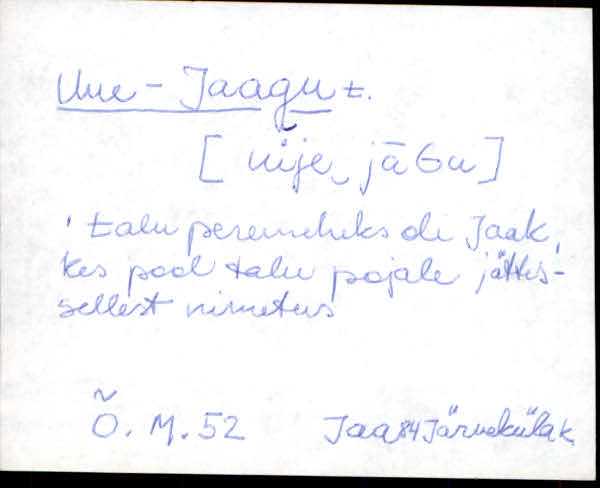 Uue-Jaagu t.
[ uije jāGu ]
' talu peremeheks oli Jaak,
kes pool talu pojale jättis-
sellest nimetus
Õ. M. 52 Jaa84 Järveküla k